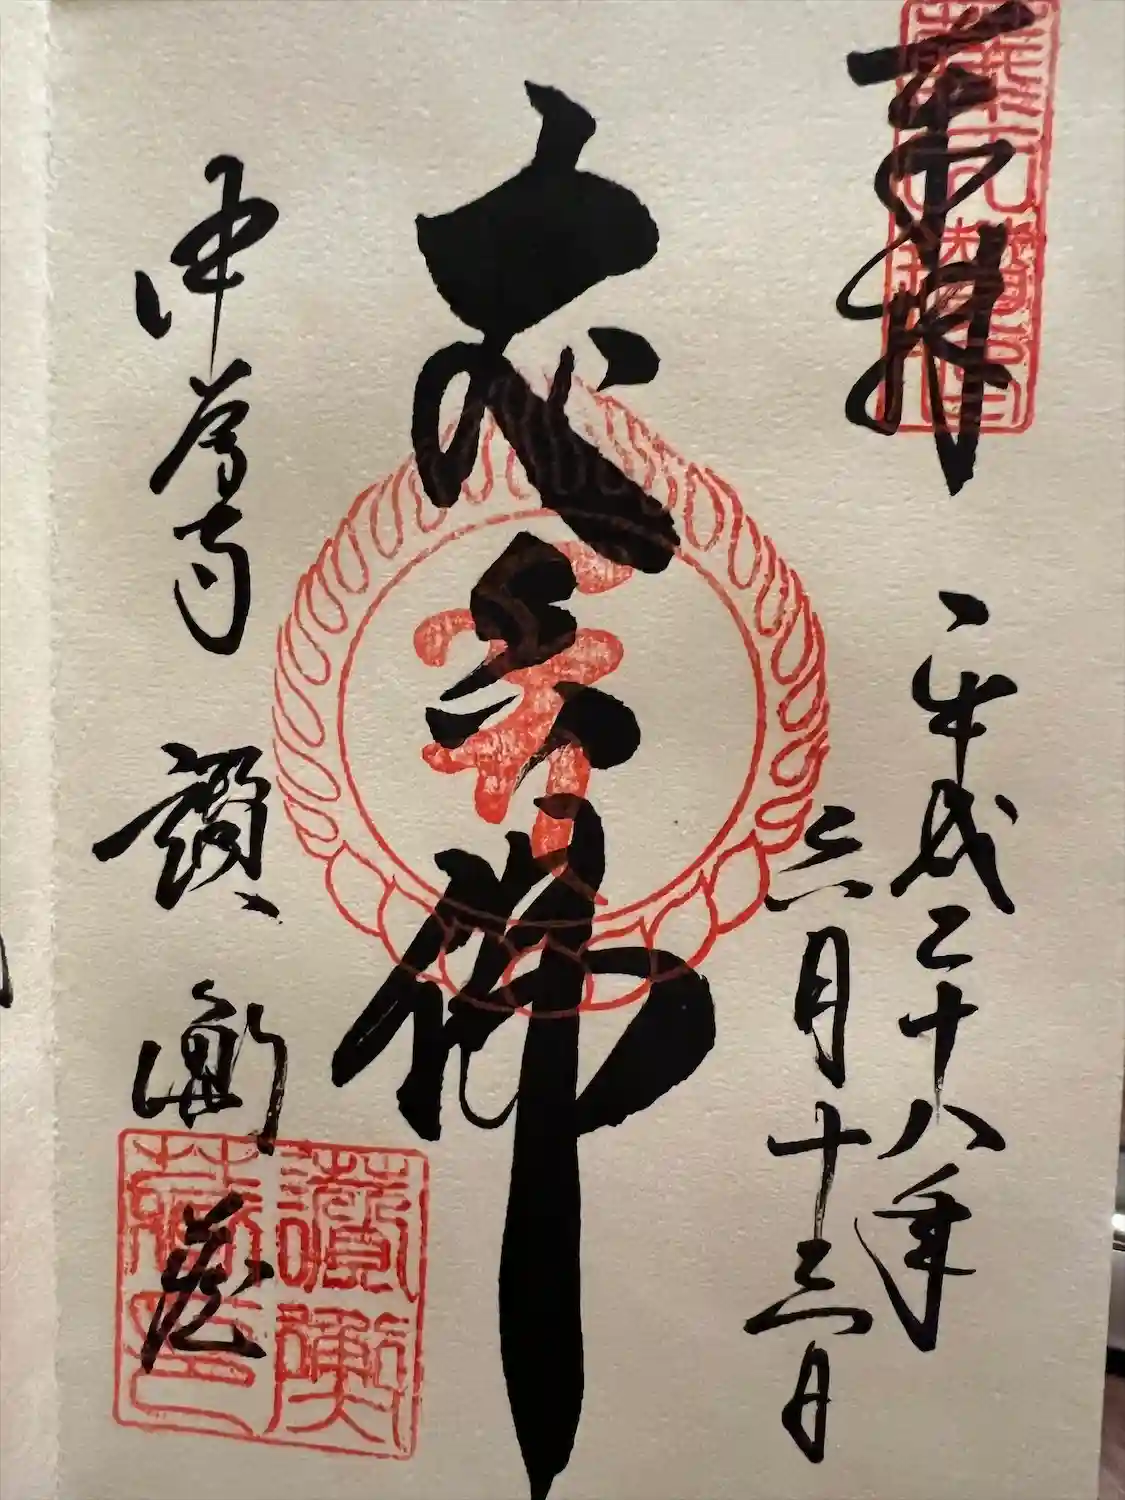 奉拝
平成二十八年
六月十三日
丈六佛
中尊寺 讃衡蔵
讃衡
蔵印